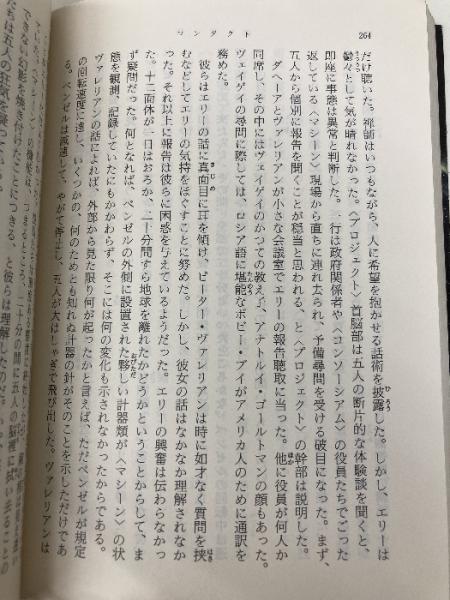 コンタクト
264
だけ聴いた。禅師はいつもながら、人に希望を抱かせる話術を披露した。しかし、エリーは
鬱々として気が晴れなかった。〈プロジェクト〉首脳部は五人の断片的な体験談を聞くと、
即座に事態は異常と判断した。一行は政府関係者や〈コンソーシアム〉の役員たちでごった
返している〈マシーン〉現場から直ちに連れ去られ、予備尋問を受ける破目になった。まず、
五人から個別に報告を聞くことが穏当と思われる、と〈プロジェクト〉の幹部は説明した。
ダヘーアとヴァレリアンが小さな会議室でエリーの報告聴取に当った。他に役員が何人か
同席し、その中にはヴェイゲイのかつての教え子、アナトルイ・ゴールトマンの顔もあった。
ヴェイゲイの尋問に際しては、ロシア語に堪能なボビー・ブイがアメリカ人のために通訳を
務めた。
彼らはエリーの話に真面目に耳を傾け、ピーター・ヴァレリアンは時に如才なく質問を挟
むなどしてエリーの気持をほぐすことに努めた。しかし、彼女の話はなかなか理解されなか
った。それ以上に報告は彼らに困惑を与えているようだった。エリーの興奮は伝わらなかっ
た。十二面体が一日はおろか、二十分間すら地球を離れたかどうかということからして、ま
ず疑問だった。何となれば、ベンゼルの外側に設置された夥しい計器類が〈マシーン〉の状
態を観測、記録していたにもかかわらず、そこには何の変化も示されなかったからである。
ヴァレリアンの話によれば、外部から見た限り何が起ったかと言えば、ただベンゼルが規定
の回転速度に達し、いくつかの、何のためとも知れぬ計器の針がそのことを示しただけであ
る。ベンゼルは減速して、やがて停止し、五人が大はしゃぎで飛び出した。ヴァレリアンは